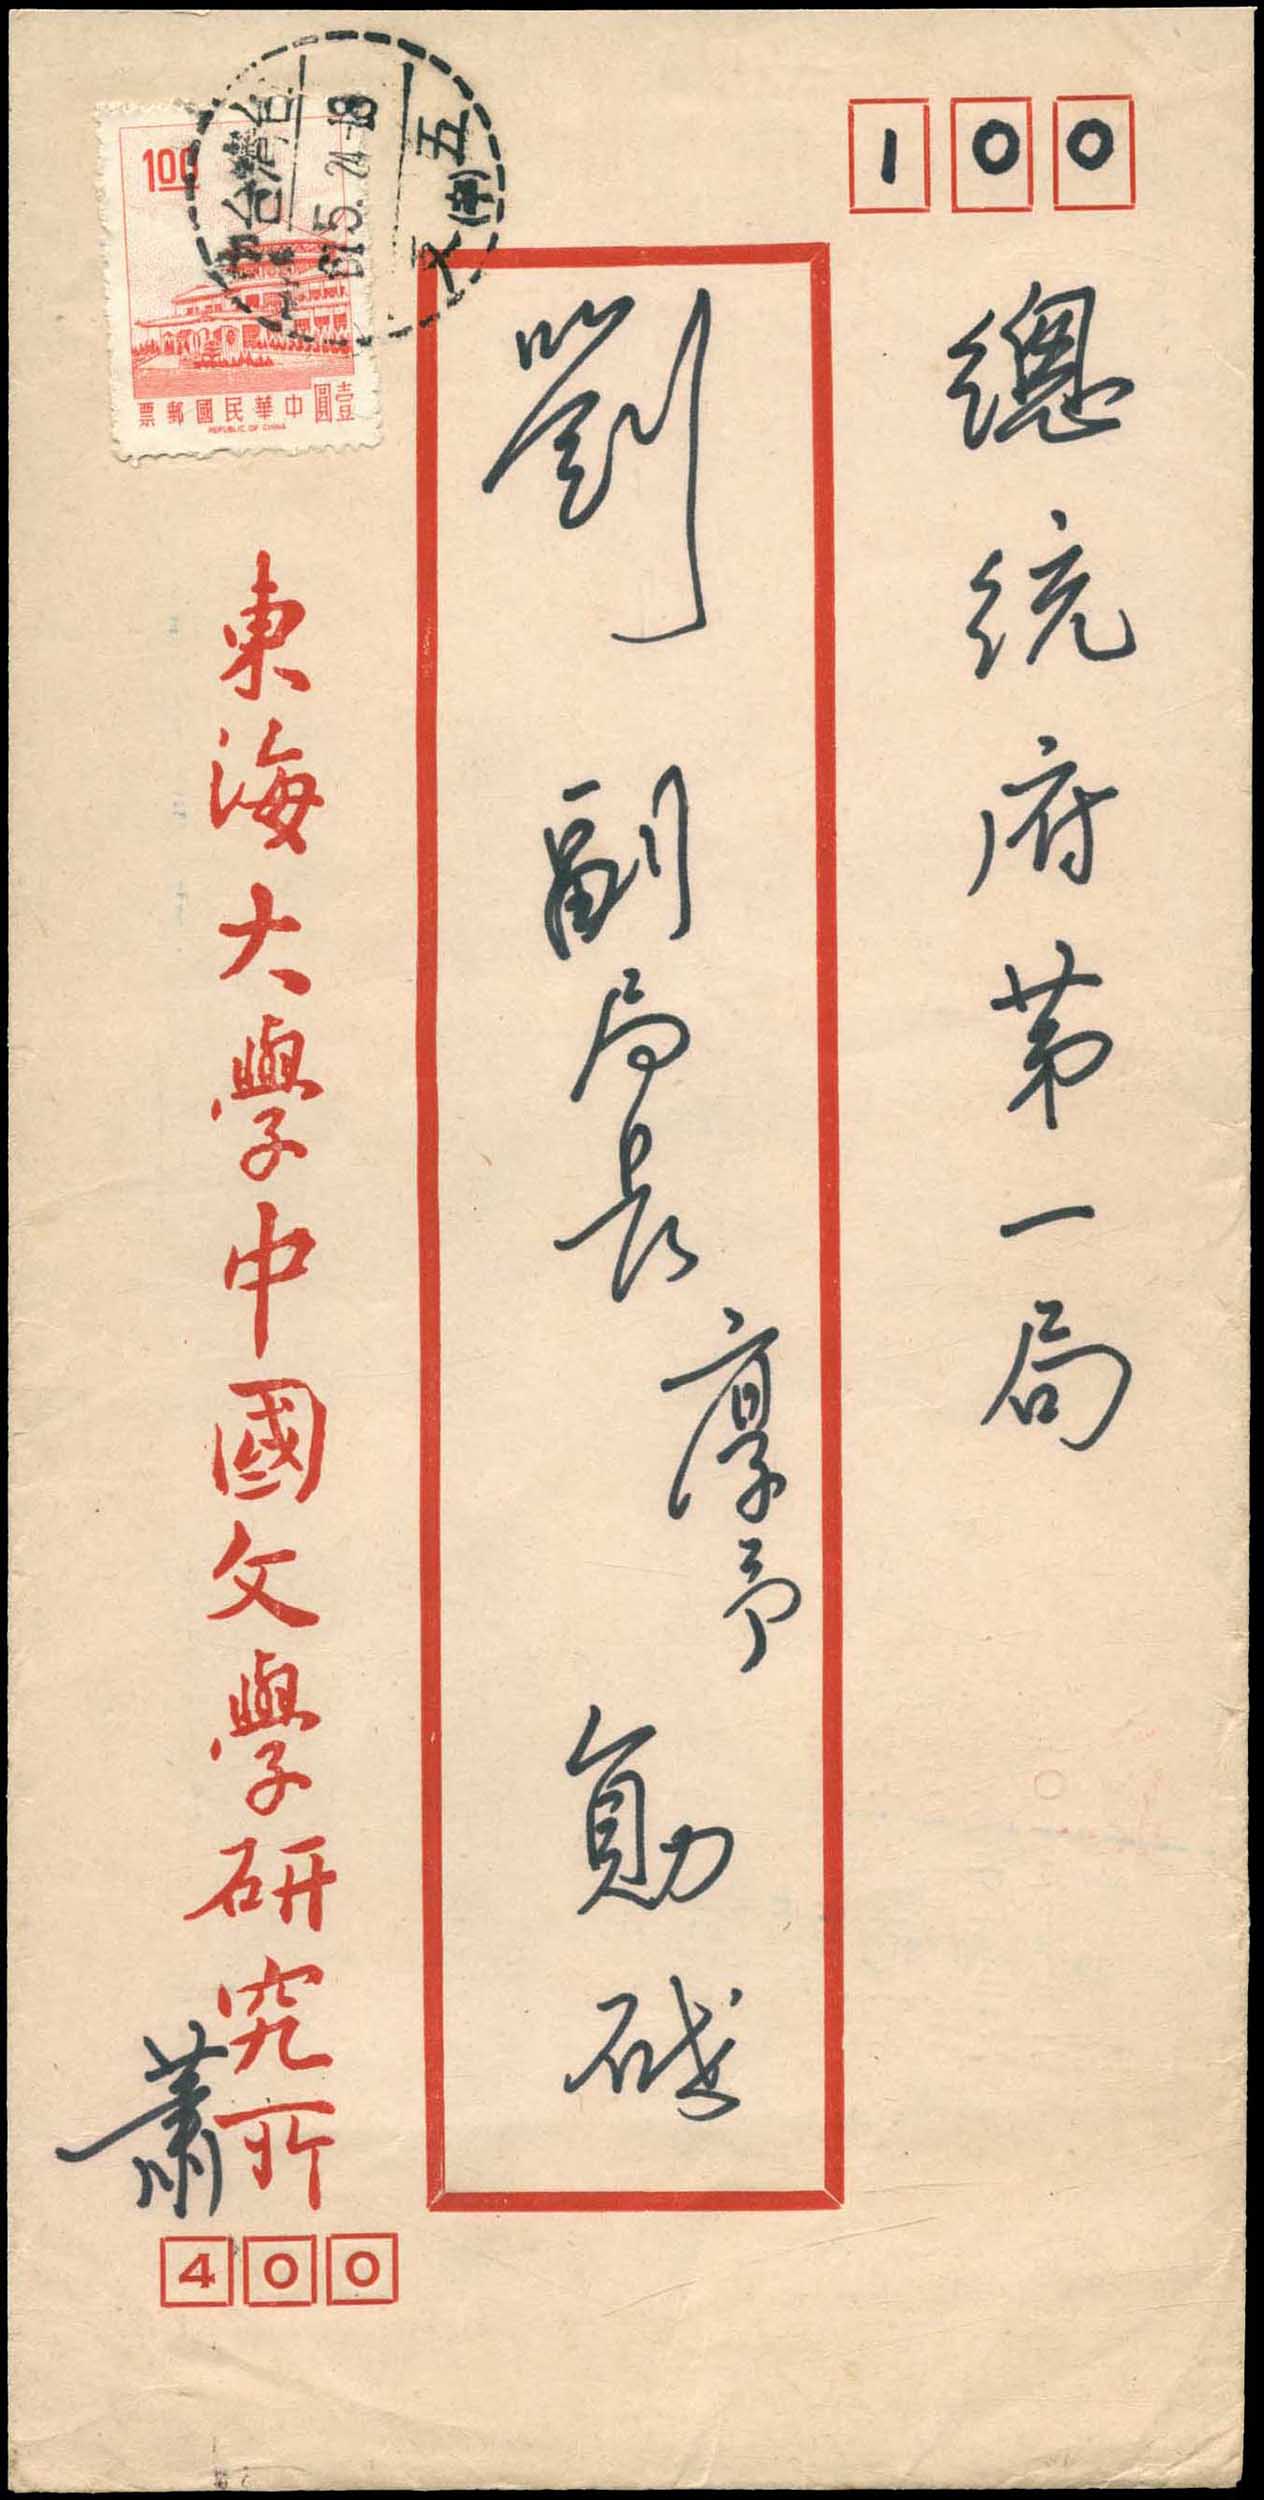 100
總統府第一局
劉 副局長 淳予 勛啟
東海大學中國文學研究所
蕭
400
1.00
中華民國郵票
壹圓
REPUBLIC OF CHINA
台灣
61.5.24-18
五